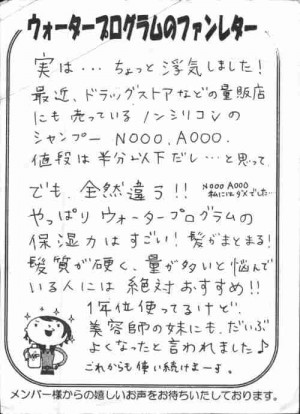 ウォータープログラムのファンレター
実は…ちょっと浮気しました!
最近、ドラッグストアなどの量販店
にも売っているノンシリコンの
シャンプー NOOO、AOOO.
値段は半分以下だし…と思って.
でも 全然違う!! NOOO AOOO
私にはダメでした…
やっぱり ウォータープログラムの
保湿力はすごい!髪がまとまる!
髪質が硬く、量が多いと悩んで
いる人には 絶対おすすめ!!
1年位使ってるけど、
美容師の妹にも、だいぶ
よくなったと言われました♪
これからも使い続けまーす。
メンバー様からの嬉しいお声をお待ちいたしております。